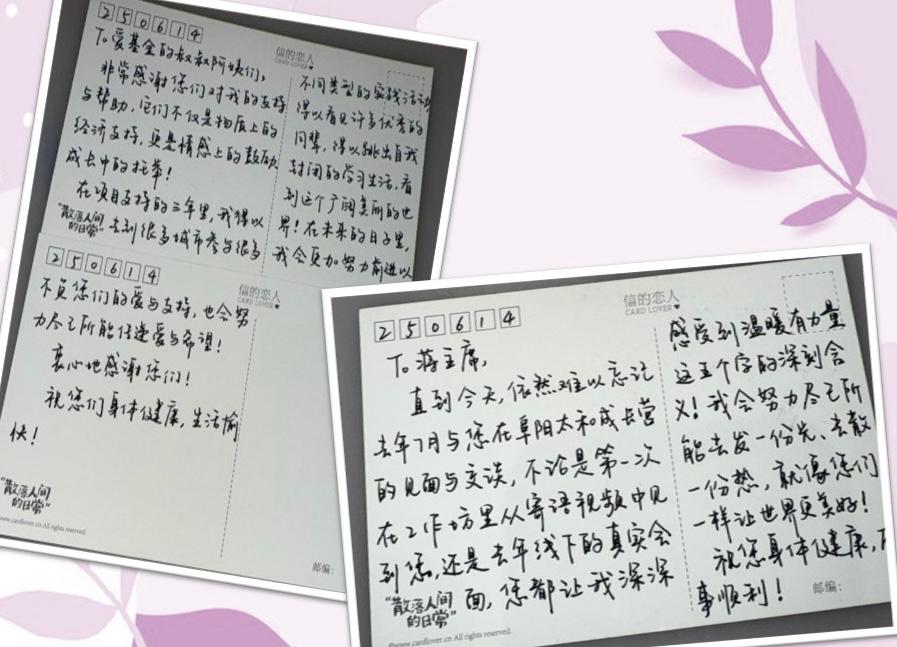 250614
信的恋人
CARD LOVER
To 爱基金的叔叔阿姨们,
非常感谢您们对我的支持
与帮助,它们不仅是物质上的
经济支持,更是情感上的鼓励,
成长中的托举!
在项目支持的三年里,我得以
去到很多城市参与很多
"散落人间
的日常"
不同类型的实践活动,
得以看见许多优秀的
同辈,得以跳出自我
封闭的学习生活,看
到这个广阔美丽的世
界!在未来的日子里,
我会更加努力前进以
250614
信的恋人
CARD LOVER
不负您们的爱与支持,也会努
力尽己所能传递爱与希望!
衷心地感谢您们!
祝您们身体健康,生活愉
快!
"散落人间
的日常"
www.cardlover.cn All rights reserved.
邮编:
250614
信的恋人
CARD LOVER
To 蒋主席,
直到今天,依然难以忘记
去年7月与您在阜阳太和成长营
的见面与交谈,不论是第一次
在工作坊里从寄语视频中见
到您,还是去年线下的真实会
面,您都让我深深
"散落人间
的日常"
©www.cardlover.cn All rights reserved.
感受到温暖有力量
这五个字的深刻含
义!我会努力尽己所
能去发一份光、去散
一份热,就像您们
一样让世界更美好!
祝您身体健康,
事顺利!
邮编: